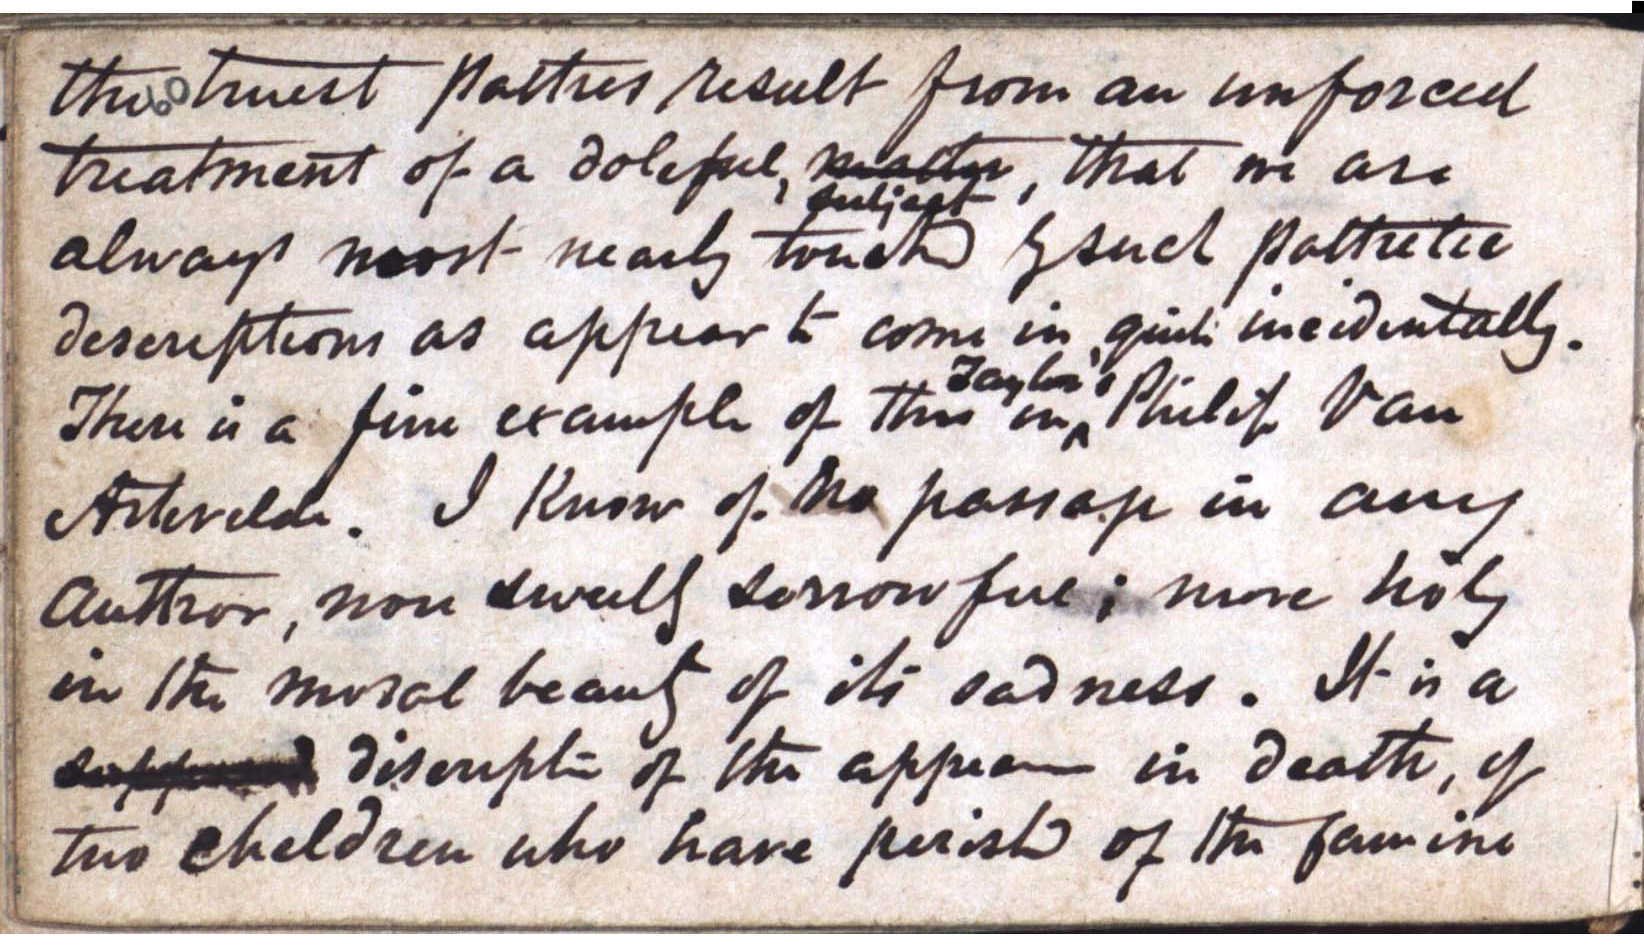 the 60 truest pathos result from an unforced
treatment of a doleful, matter, that we are
subject
always most nearly touchd by such pathetic
descriptions as appear to come in, quite incidentally.
There is a fine example of this in Taylor's Philip Van
Artevelde. I know of no passage in any
author, more sweetly sorrowful; more holy
in the moral beauty of its sadness. It is a
discriptn of the appearn in death, of
two children who have perishd of the famine